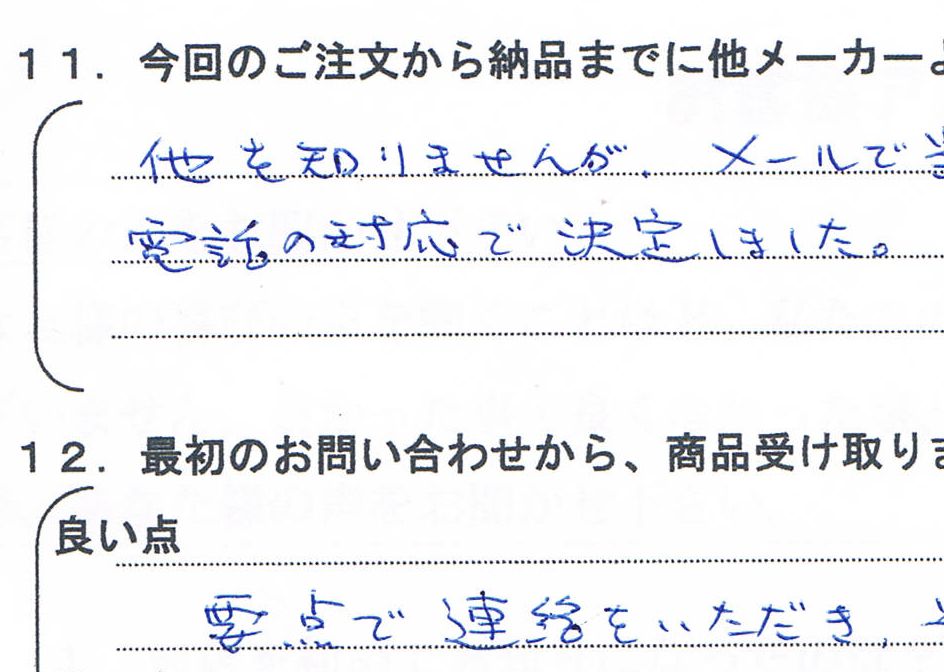 11．今回のご注文から納品までに他メーカー
他を知りませんが、メールで
電話の対応で決定しました。
12．最初のお問い合わせから、商品受け取り
良い点
要点で連絡をいただき、